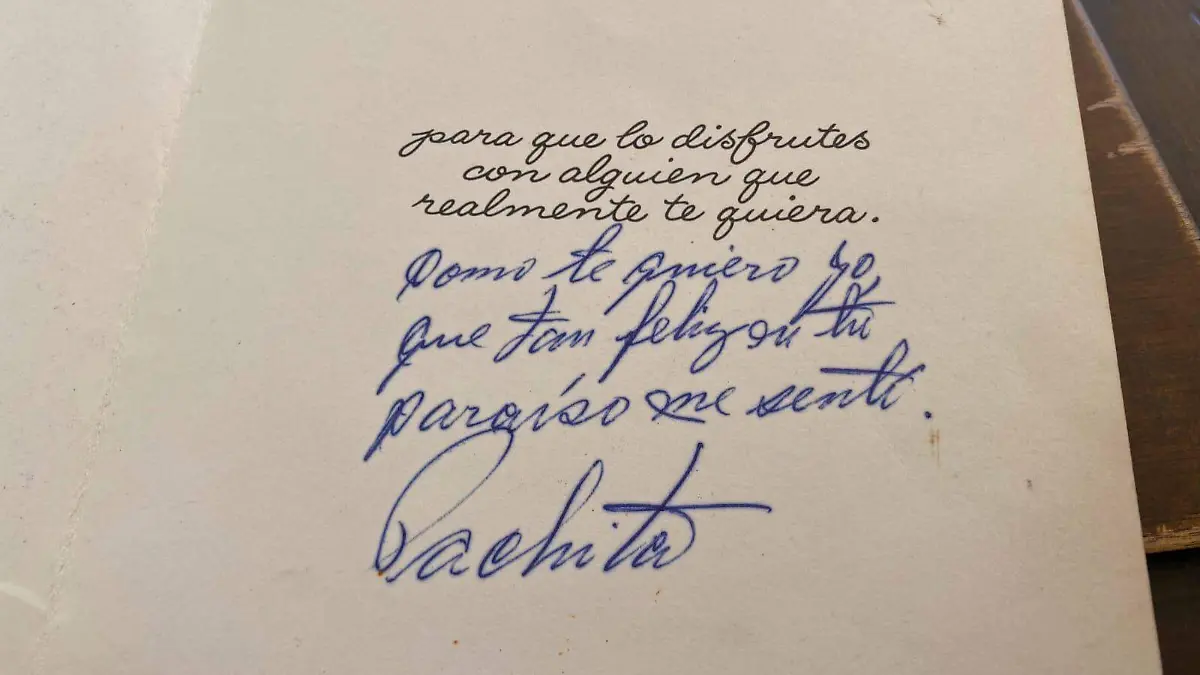 para que lo disfrutes
con alguien que
realmente te quiera.
Como te quiero yo,
que tan feliz en tu
paraíso me sentí.
Pachita